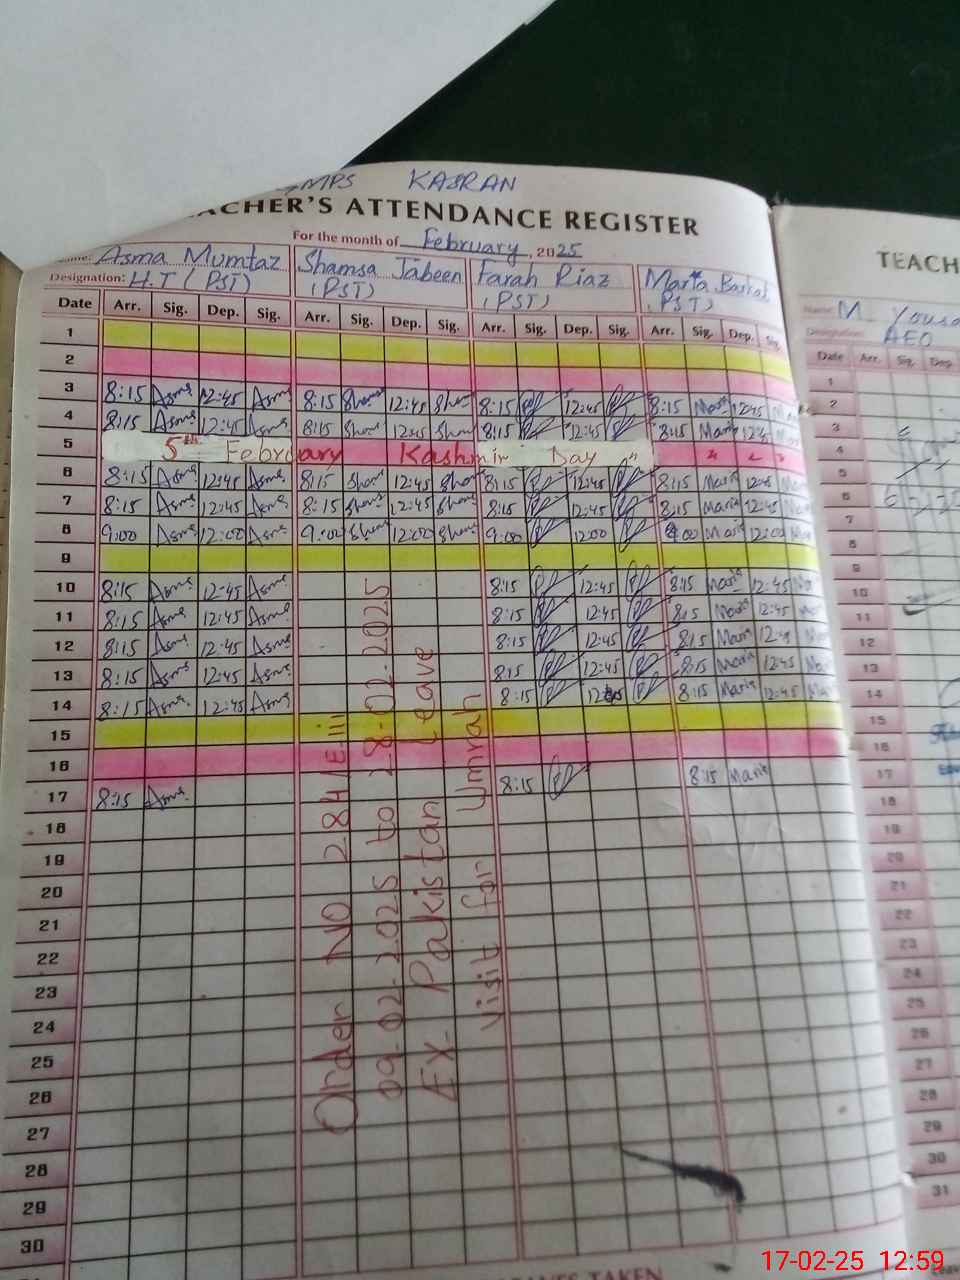 GMPS KAJRAN
TEACHER'S ATTENDANCE REGISTER
For the month of February, 2025
Asma Mumtaz Shamsa Jabeen Farah Riaz Maria Barkat
Designation: H.T (PST) (PST) (PST) (PST)
Date Arr. Sig. Dep. Sig. Arr. Sig. Dep. Sig. Arr. Sig. Dep. Sig. Arr. Sig. Dep. Sig.
1
2
3 8:15 Asma 12:45 Asma 8:15 Sham 12:45 Sham 8:15 12:45 8:15 Maria 12:45
4 8:15 Asma 12:45 Asma 8:15 Sham 12:45 Sham 8:15 12:45 8:15 Maria 12:45
5 5th February Kashmir Day "
6 8:15 Asma 12:45 Asma 8:15 Sham 12:45 Sham 8:15 12:45 8:15 Maria 12:45
7 8:15 Asma 12:45 Asma 8:15 Sham 12:45 Sham 8:15 12:45 8:15 Maria 12:45
8 9:00 Asma 12:00 Asma 9:00 Sham 12:00 Sham 9:00 12:00 9:00 Maria 12:00
9
10 8:15 Asma 12:45 Asma 8:15 12:45 8:15 Maria 12:45
11 8:15 Asma 12:45 Asma 8:15 12:45 8:15 Maria 12:45
12 8:15 Asma 12:45 Asma 8:15 12:45 8:15 Maria 12:45
13 8:15 Asma 12:45 Asma 8:15 12:45 8:15 Maria 12:45
14 8:15 Asma 12:45 Asma 8:15 12:45 8:15 Maria 12:45
15
16
17 8:15 Asma 8:15 8:15 Maria
18
19
20
21
22
23
24
25
26
27
28
29
30
Order NO 284/E iii
09-02-2025 to 28-02-2025
Ex-Pakistan Leave
visit for Umrah
TEACH
Name: M.
Designation: AEO
Date Arr. Sig. Dep.
1
2
3
4
5
6
7
8
9
10
11
12
13
14
15
16
17
18
19
20
21
22
23
24
25
26
27
28
29
30
31
TAKEN
17-02-25 12:59